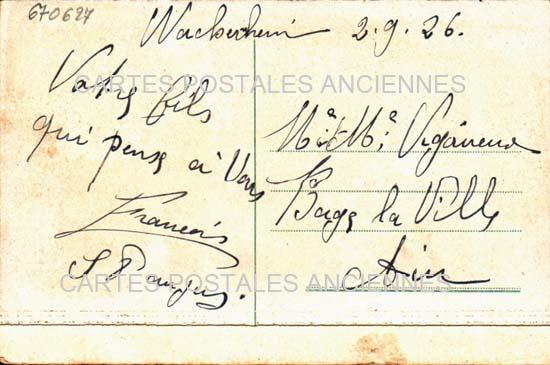 670627
2.9.26.
CARTES POSTALES ANCIENNES
Votre fils
qui pense à Vous
François
Mr et Me
Bage la Ville
Ain
CARTES POSTALES ANCIENNES